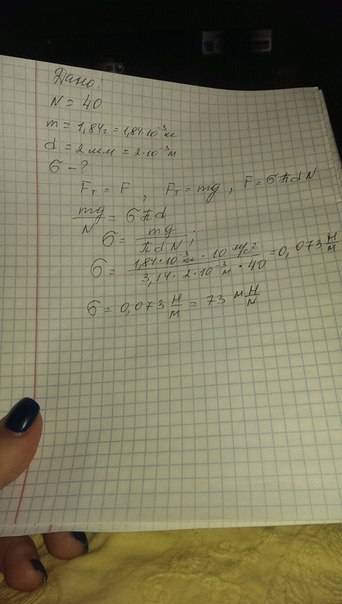 Дано:
N = 40
m = 1,84г = 1,84·10⁻³кг
d = 2 мм = 2·10⁻³м
σ - ?
Fт = F , Fт = mg , F = σπdN
mg/N = σπd
σ = mg/πdN ;
σ = 1,84·10⁻³кг · 10 м/с²/3,14 · 2·10⁻³м · 40 = 0,073 Н/м
σ = 0,073 Н/м = 73 мН/м